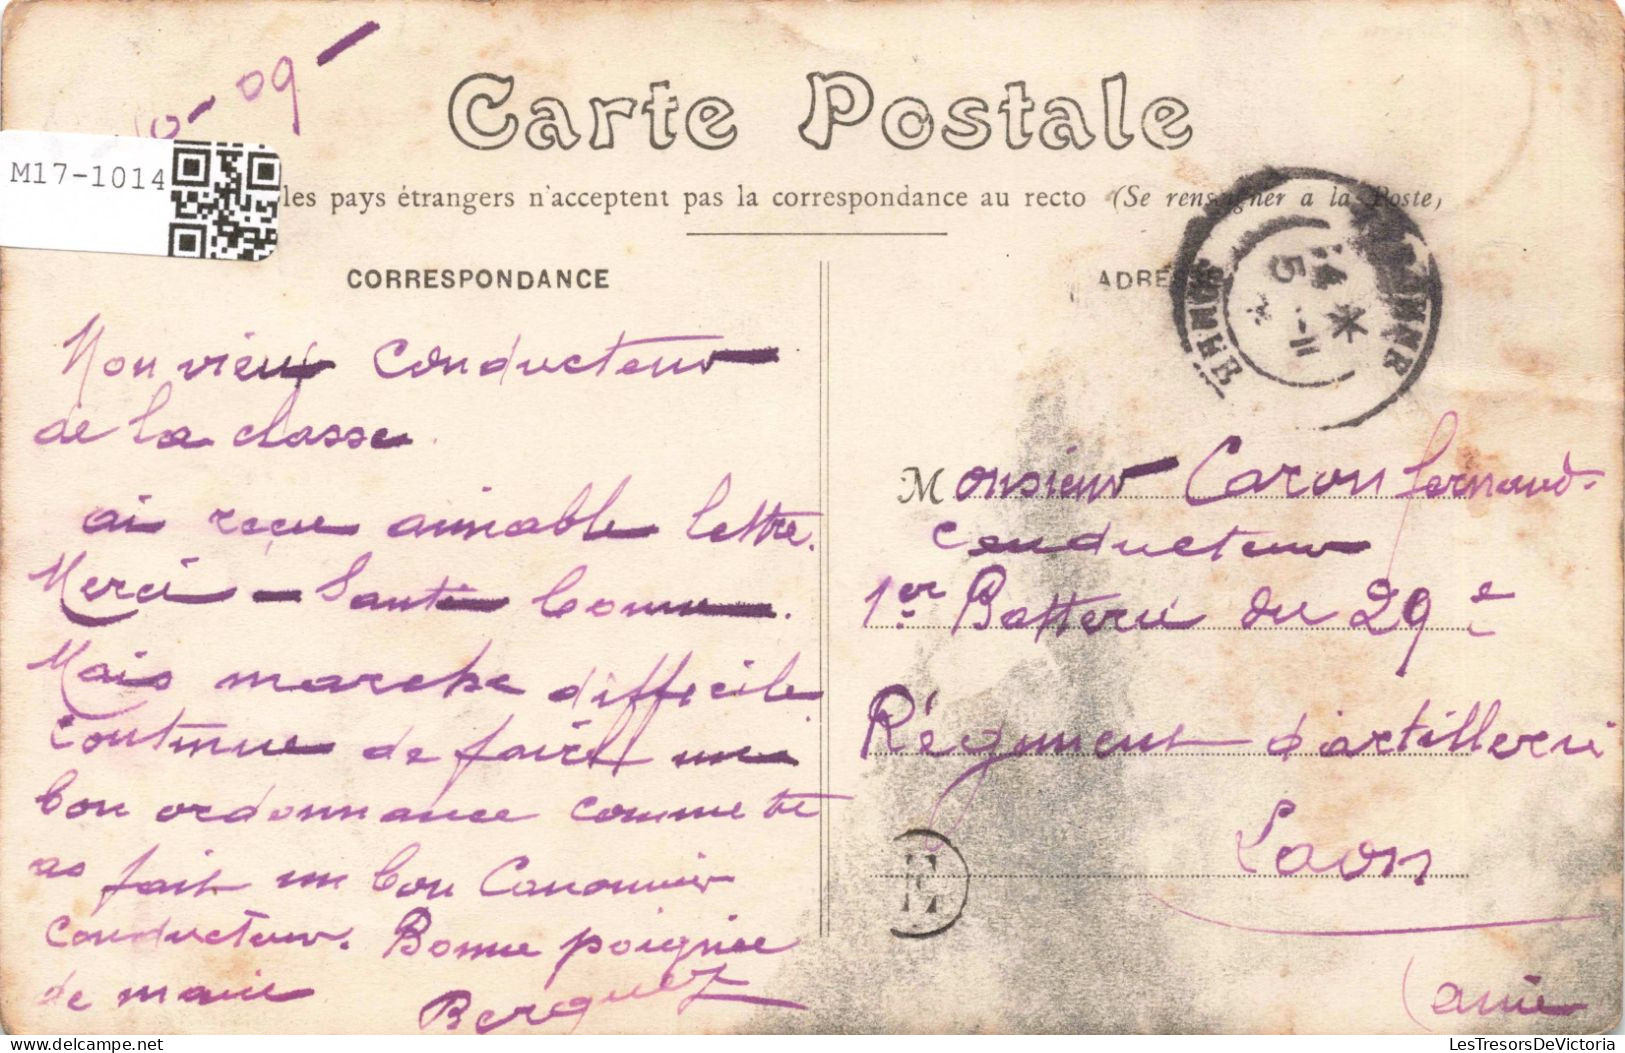 -09-
Carte Postale
M17-1014
les pays étrangers n'acceptent pas la correspondance au recto (Se renseigner a la Poste)
CORRESPONDANCE
ADRE
4
5 -11
Mon vieux Conducteur
de la classe
ai reçu aimable lettre.
Merci - Santé bonne.
Mais marche difficile
continue de faire un
bon ordonnance comme tu
as fait un bon Canonnier
conducteur. Bonne poignée
de main
Berquez
Monsieur Caron fernand
Conducteur
1er Batterie du 29e
Régiment d'artillerie
Laon
(aisne
E
LesTresorsDeVictoria